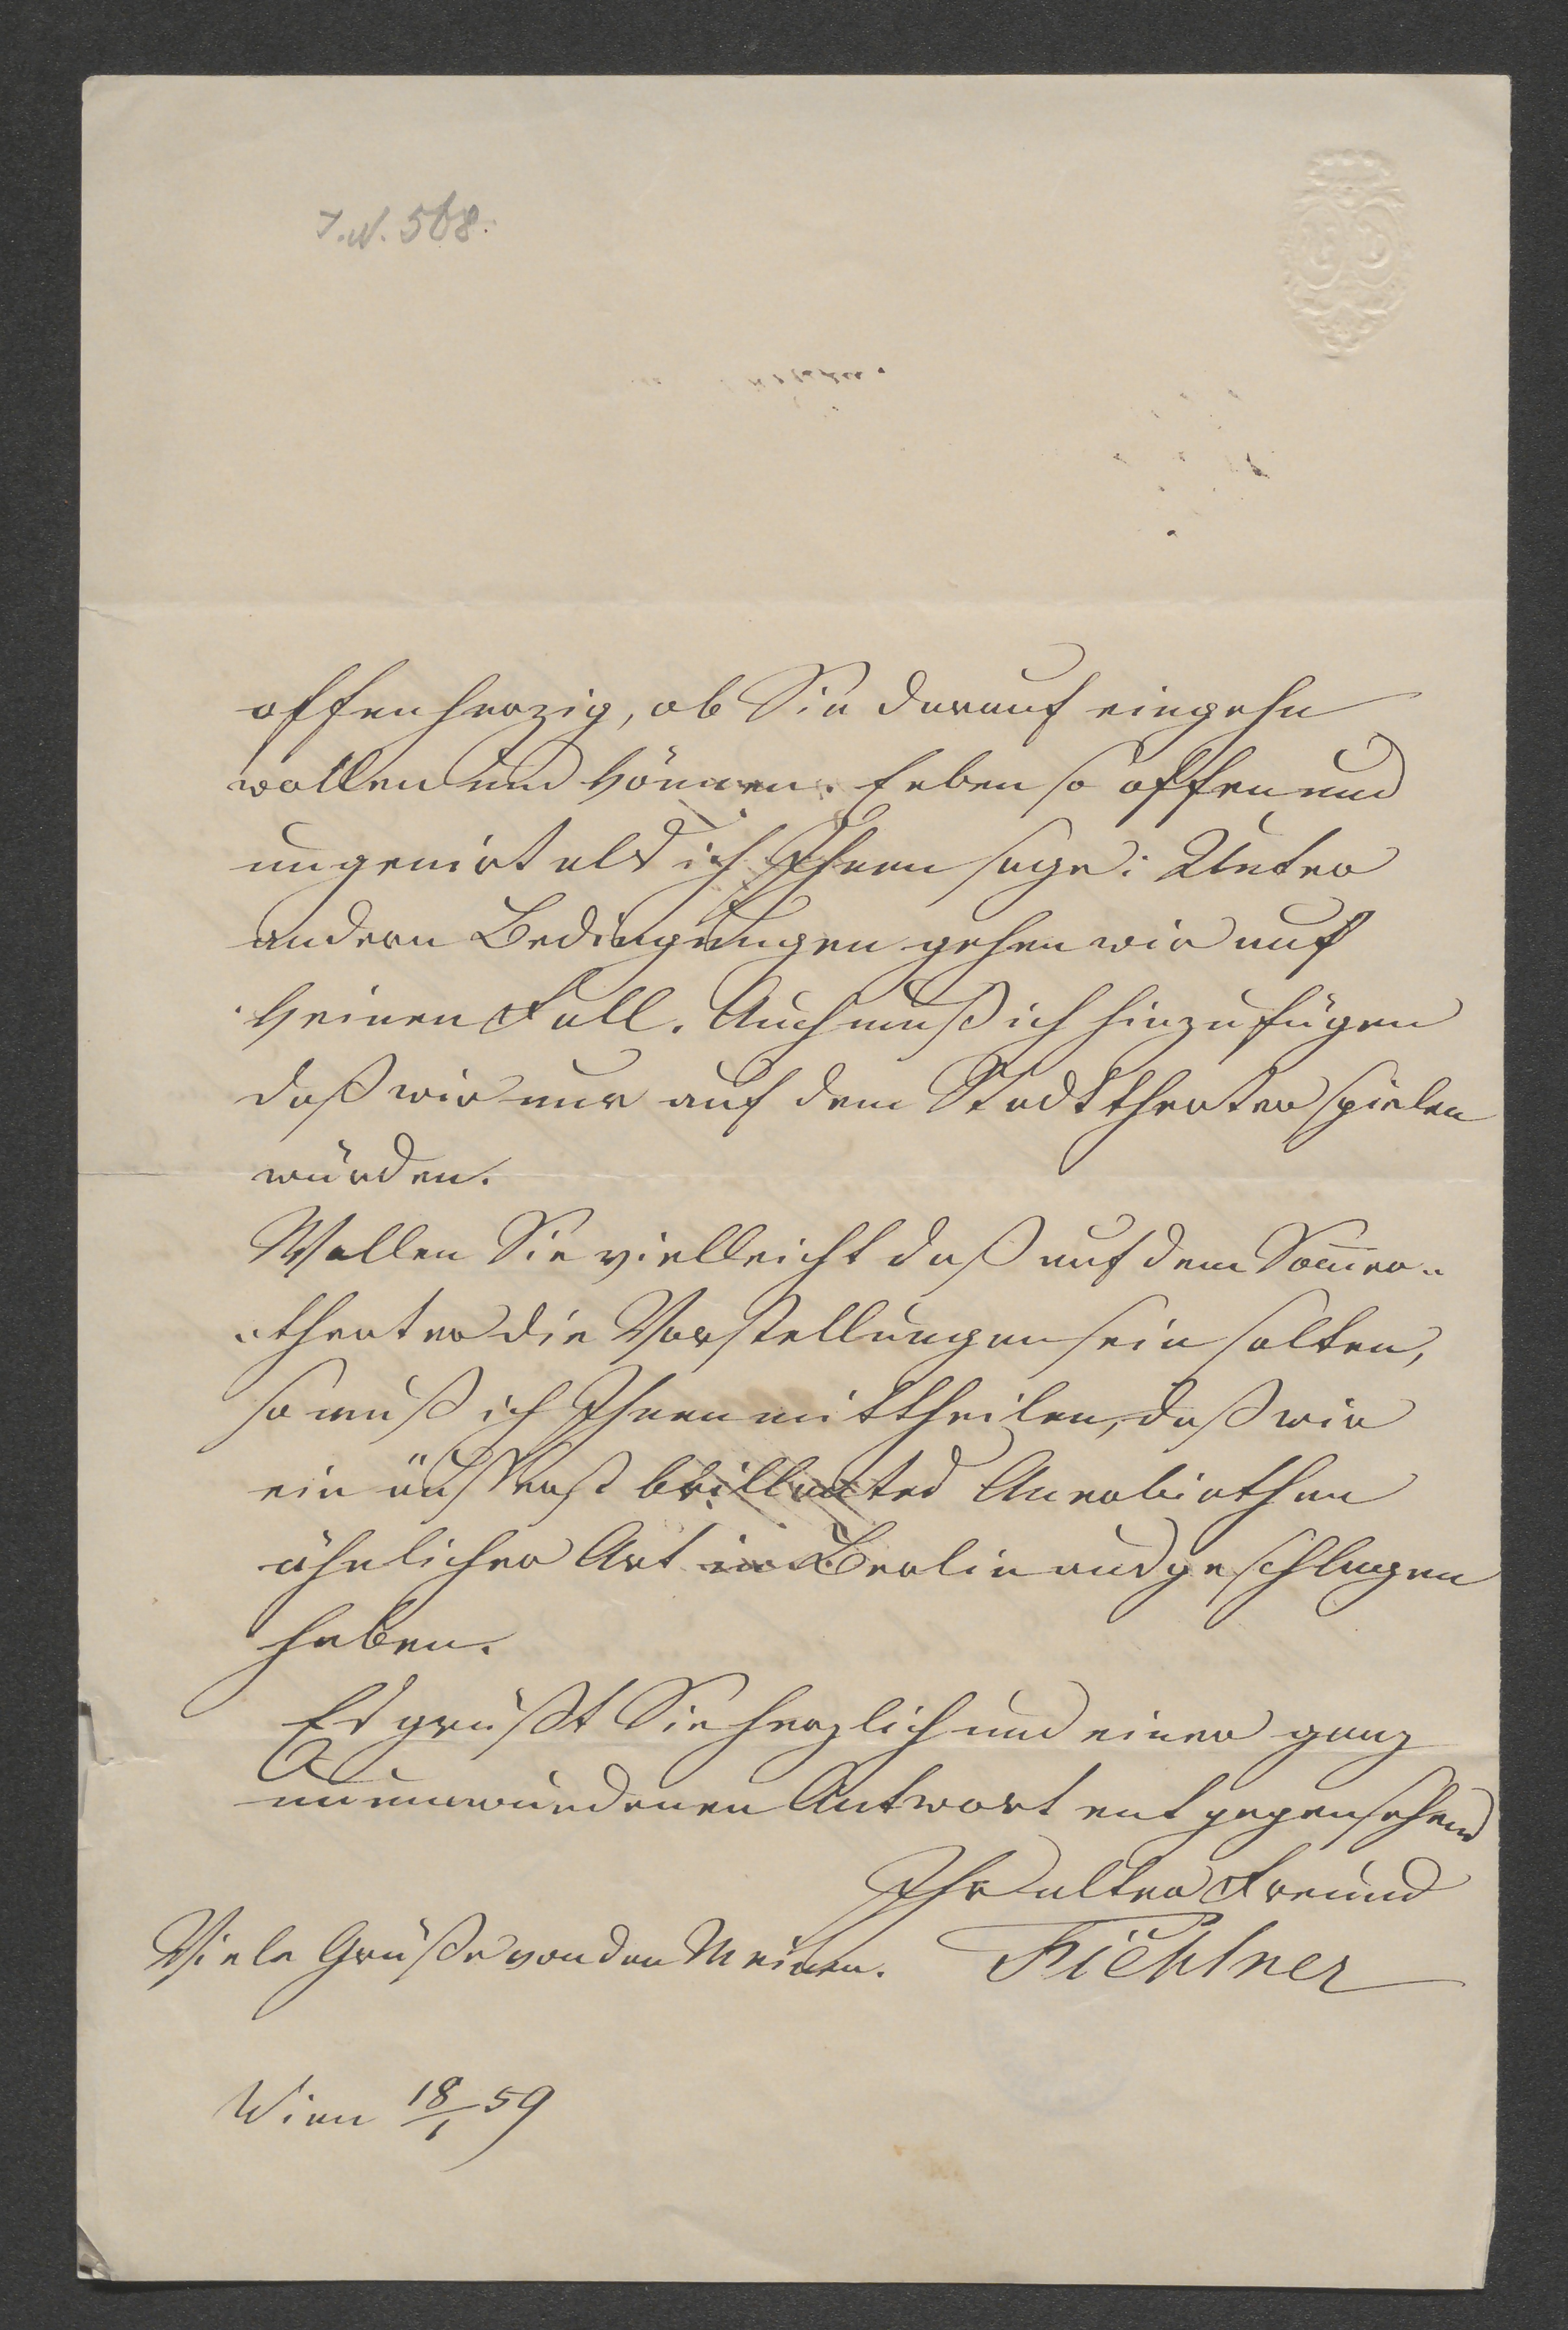 J.N. 568.
offenherzig, ob Sie darauf eingehn
wollen und können. Eeben so offen und
ungenirt als ich Ihnen sage: Unter
andern Bedingungen gehen wir auf
keinen Fall. Auch muß ich hinzufügen
daß wir nur auf dem Stadttheater spielen
würden.
Wollen Sie vielleicht daß auf dem Som̅er-
-theater die Vorstellungen sein solten,
so muß ich Ihnen mittheilen, daß wir
ein äußerst brillantes Anerbiethen
ähnlicher Art in Berlin ausgeschlagen
haben.
Es grüßt Sie herzlich und einer ganz
unumwundenen Antwort entgegensehend
Ihr alter Freund
Viele Grüße von den Meinen. Fichtner
Wien 18/1 59